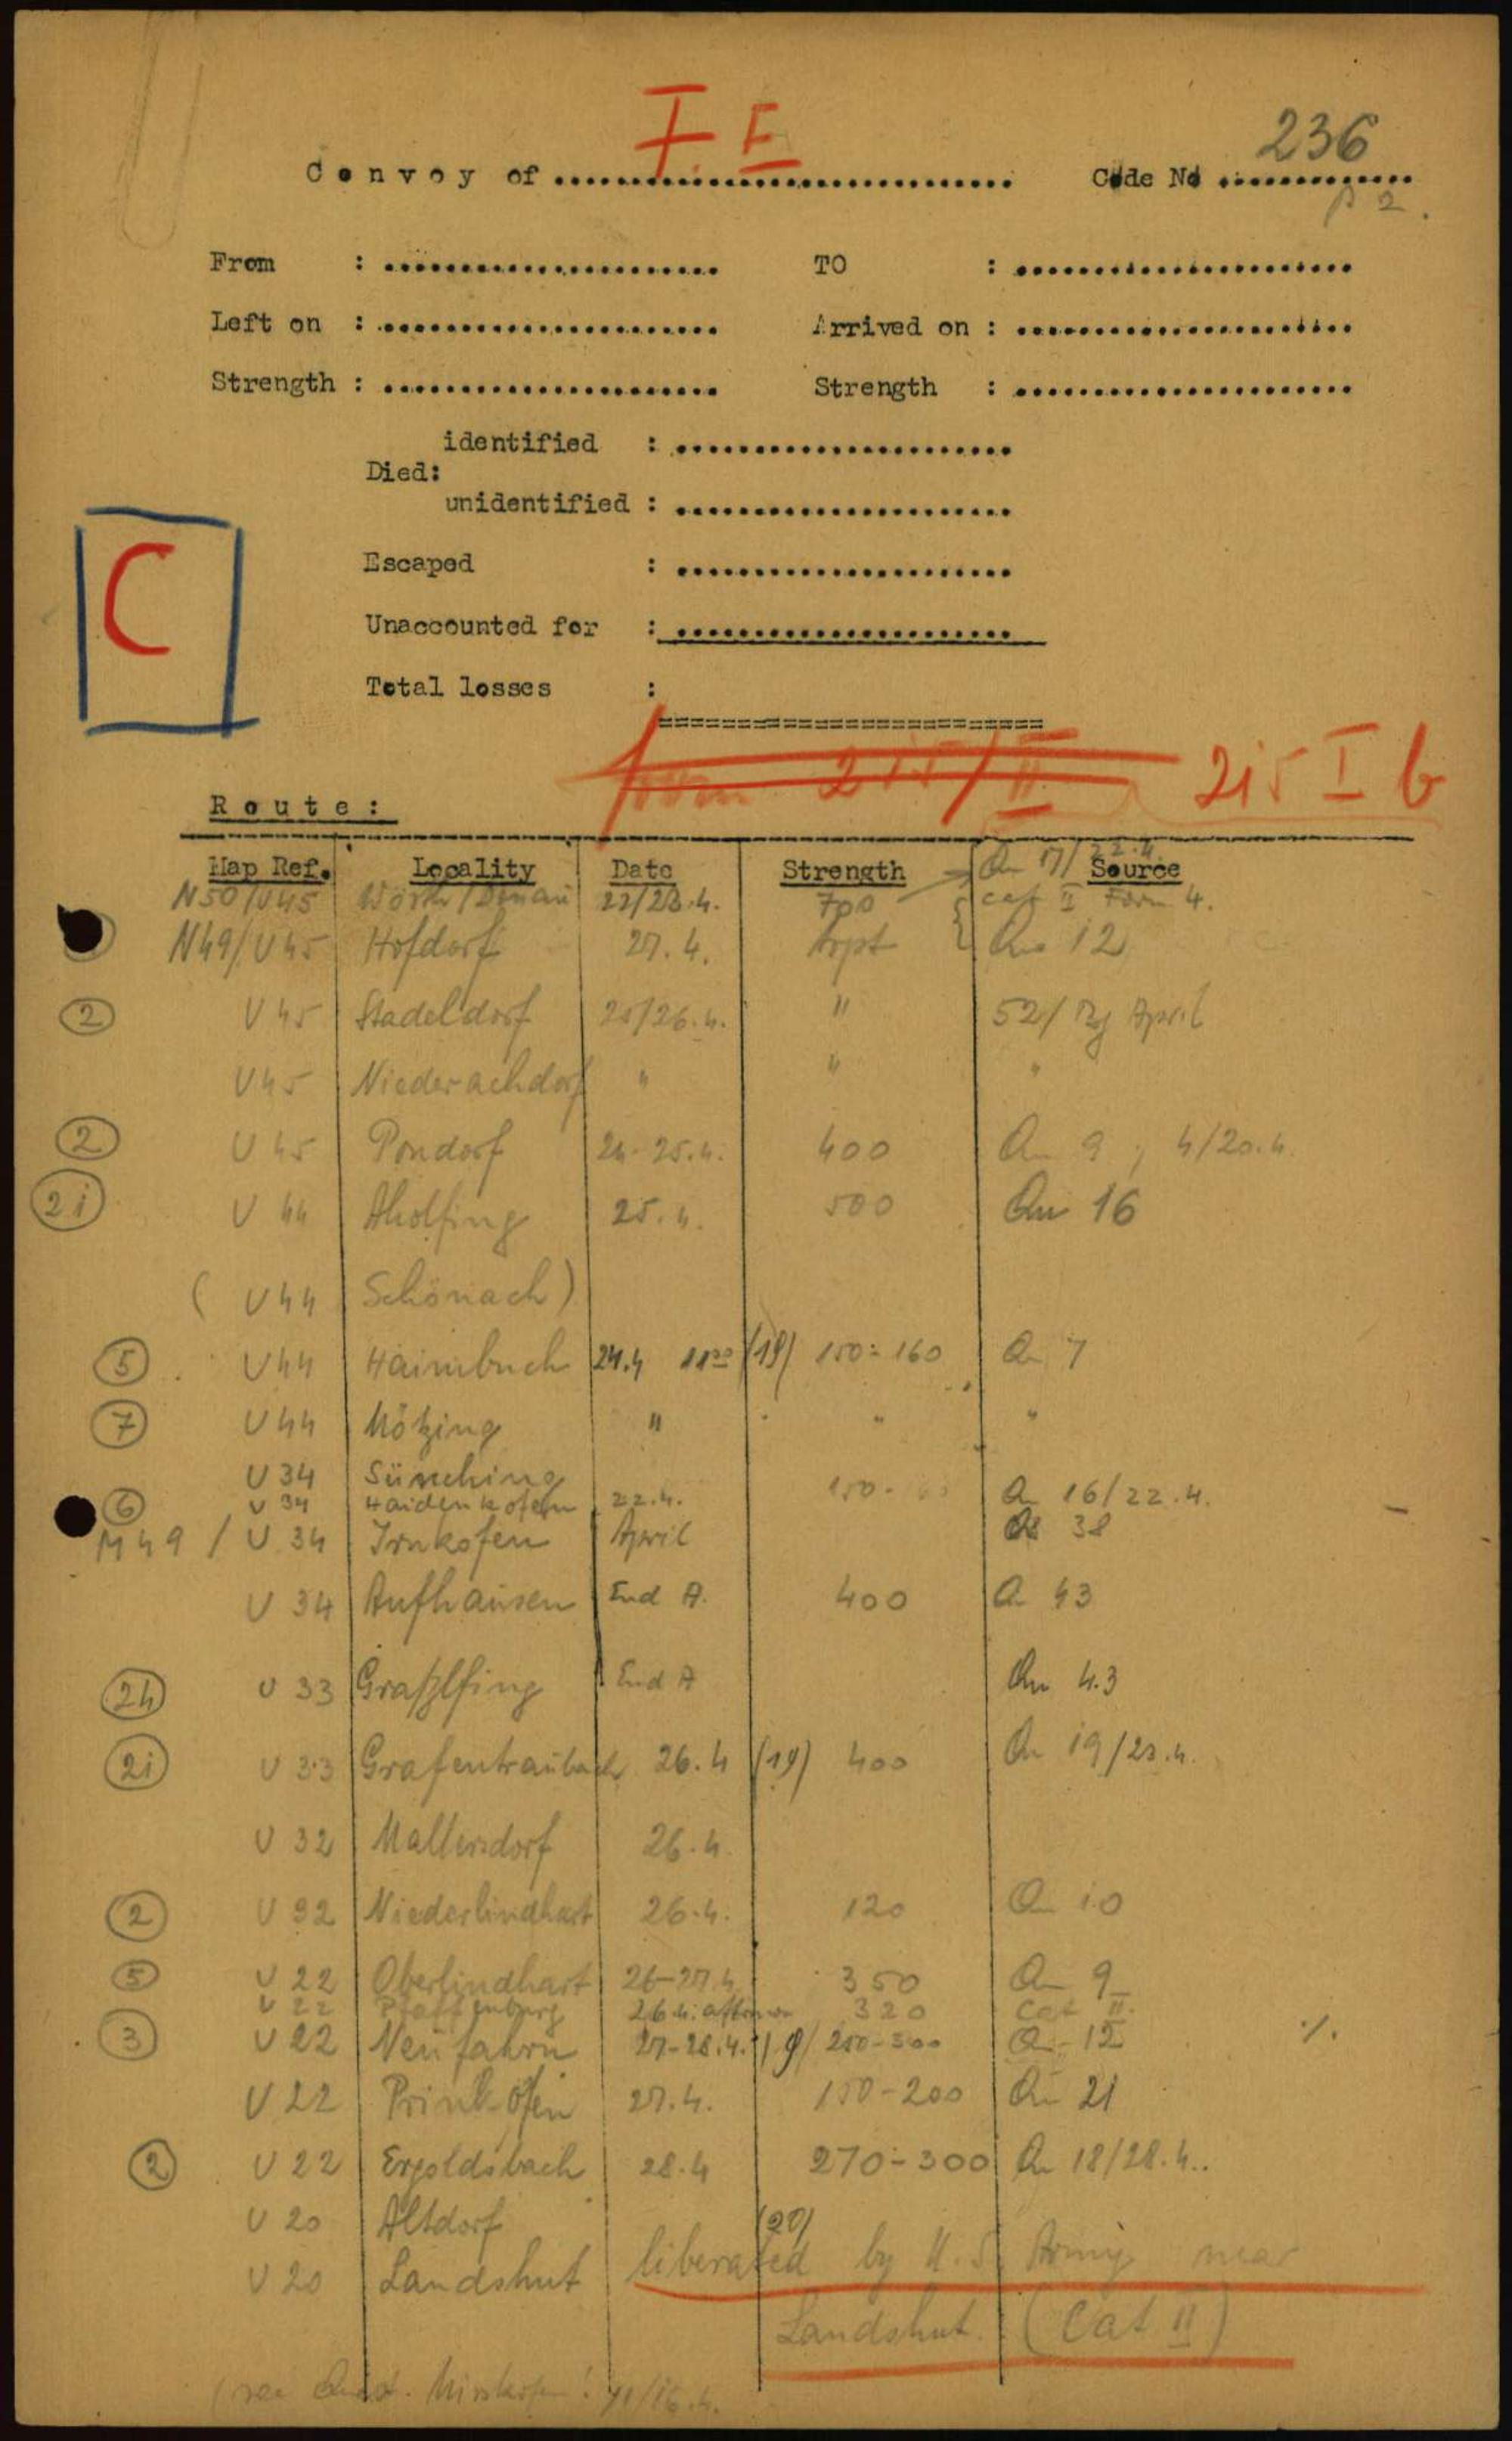 F. E
Convoy of .............................. Code No 236 .............
p 2.
From : ...................... TO : ......................
Left on : ...................... Arrived on : ......................
Strength : ...................... Strength : ......................
identified : ......................
Died:
unidentified : ......................
C
Escaped : ......................
Unaccounted for : ......................
Total losses :
=========================
from 215/II 215 I b
Route:
Map Ref. Locality Date Strength Source
An 17/22.4.
N50/U45 Wörth/Donau 22/23.4. 700 cat II Form 4.
N49/U45 Hofdorf 27.4. trpt An 12
2 U45 Stadeldorf 25/26.4. " 52/ April
U45 Niederachdorf " " "
2 U45 Pondorf 24-25.4. 400 An 9, 4/20.4.
21 U44 Aholfing 25.4. 500 An 16
( U44 Schönach)
5 U44 Haimbuch 24.4 11⁰⁰ (19) 150-160 An 7
7 U44 Mötzing " " "
U34 Sünching 150-
6 U34 Haidenkofen 22.4. An 16/22.4.
M49 / U34 Irnkofen April 38
U34 Aufhausen End A. 400 An 43
24 U33 Graßlfing End A An 43
21 U33 Grafentraubach 26.4 (19) 400 An 19/23.4.
U32 Mallersdorf 26.4.
2 U32 Niederlindhart 26.4. 120 An 10
5 U22 Oberlindhart 26-27.4 350 An 9
U22 Pfaffenberg 26.4. afternoon 320 Cat II.
3 U22 Neufahrn 27-28.4. 19/ 250-300 An 12 ./.
U22 Prinkofen 27.4. 150-200 An 21
2 U22 Ergoldsbach 28.4 270-300 An 18/28.4..
U20 Altdorf (20)
U20 Landshut liberated by U.S. Army near
Landshut. (Cat II)
(see 41/16.4.